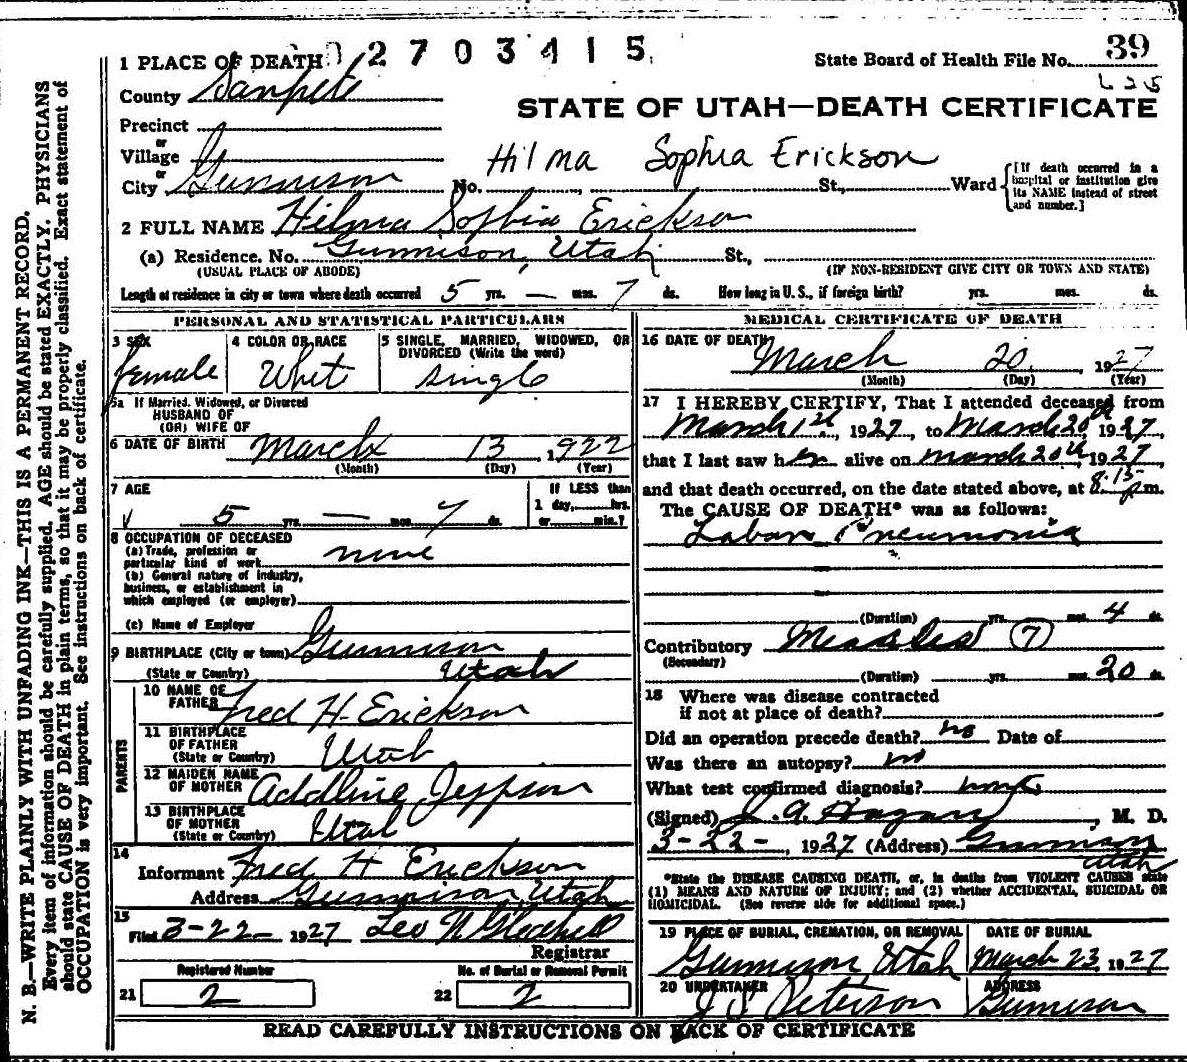 2703415
State Board of Health File No. 39
STATE OF UTAH—DEATH CERTIFICATE
1 PLACE OF DEATH
County Sanpete
Precinct
or
Village
or
City Gunnison No. St., Ward
Hilma Sophia Erickson
[If death occurred in a hospital or institution give its NAME instead of street and number.]
2 FULL NAME Hilma Sophia Erickson
(a) Residence. No. Gunnison, Utah St.,
(USUAL PLACE OF ABODE) (IF NON-RESIDENT GIVE CITY OR TOWN AND STATE)
Length of residence in city or town where death occurred 5 yrs. — mos. 7 ds. How long in U. S., if foreign birth? yrs. mos. ds.
PERSONAL AND STATISTICAL PARTICULARS
3 SEX
female
4 COLOR OR RACE
Whit
5 SINGLE, MARRIED, WIDOWED, OR DIVORCED (Write the word)
single
5a If Married, Widowed, or Divorced
HUSBAND OF
(OR) WIFE OF
6 DATE OF BIRTH March 13, 1922
(Month) (Day) (Year)
7 AGE
5 yrs. — mos. 7 ds.
If LESS than
1 day, hrs.
or min.?
8 OCCUPATION OF DECEASED
(a) Trade, profession or
particular kind of work none
(b) General nature of industry,
business, or establishment in
which employed (or employer)
(c) Name of Employer
9 BIRTHPLACE (City or town) Gunnison
(State or Country) Utah
PARENTS
10 NAME OF
FATHER Fred H. Erickson
11 BIRTHPLACE
OF FATHER
(State or Country) Utah
12 MAIDEN NAME
OF MOTHER Addline Jeppson
13 BIRTHPLACE
OF MOTHER
(State or Country) Utah
14
Informant Fred H Erickson
Address Gunnison, Utah
15
Filed 3-22- 1927 Leo
Registrar
Registered Number
21 2
No. of Burial or Removal Permit
22 2
MEDICAL CERTIFICATE OF DEATH
16 DATE OF DEATH
March 20, 1927
(Month) (Day) (Year)
17 I HEREBY CERTIFY, That I attended deceased from
March 1st, 1927, to March 20th 1927,
that I last saw her alive on March 20th, 1927,
and that death occurred, on the date stated above, at 8.15 p m.
The CAUSE OF DEATH* was as follows:
Lobar Pneumonia
(Duration) yrs. mos. 4 ds.
Contributory Measles (7)
(Secondary)
(Duration) yrs. mos. 20 ds.
18 Where was disease contracted
if not at place of death?
Did an operation precede death? no Date of
Was there an autopsy? no
What test confirmed diagnosis?
(Signed) J. A. Hagan, M. D.
3-22-, 1927 (Address) Gunnison
Utah
*State the DISEASE CAUSING DEATH, or, in deaths from VIOLENT CAUSES state
(1) MEANS AND NATURE OF INJURY; and (2) whether ACCIDENTAL, SUICIDAL OR
HOMICIDAL. (See reverse side for additional space.)
19 PLACE OF BURIAL, CREMATION, OR REMOVAL
Gunnison Utah
DATE OF BURIAL
March 23, 1927
20 UNDERTAKER
J S Peterson
ADDRESS
Gunnison
READ CAREFULLY INSTRUCTIONS ON BACK OF CERTIFICATE
N. B.—WRITE PLAINLY WITH UNFADING INK—THIS IS A PERMANENT RECORD.
Every item of information should be carefully supplied. AGE should be stated EXACTLY. PHYSICIANS
should state CAUSE OF DEATH in plain terms, so that it may be properly classified. Exact statement of
OCCUPATION is very important. See instructions on back of certificate.